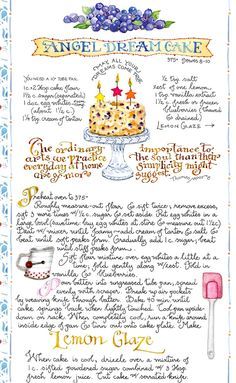 ANGEL DREAM CAKE
MAKE ALL YOUR
DREAMS COME TRUE
375° SERVES 8-10
YOU NEED A 10" TUBE PAN.
1 c. + 2 Tbsp. cake flour
1 1/2 c. sugar (separated)
1 doz. egg whites
(about 1 1/2 c.)
1 1/4 tsp. cream of tartar
1/2 tsp. salt
zest of one lemon
1 tsp. vanilla extract
1 1/2 c. fresh or frozen
blueberries (thawed
& drained)
LEMON GLAZE →
The ordinary
arts we practice
everyday at home
are of more
importance to
the soul than their
simplicity might
suggest.
Preheat oven to 375°
Roughly measure out flour & sift twice; remove excess,
sift 3 more times w/ 1/2 c. sugar & set aside. Put egg whites in a
large bowl
Beat w/ mixer until foamy—add cream of tartar & salt &
beat until soft peaks form. Gradually add 1 c. sugar; beat
until stiff peaks form.
Sift flour mixture over egg whites a little at a
time; fold gently along w/ zest. Fold in
vanilla & blueberries.
Pour batter into ungreased tube pan, spread
evenly with scraper. Break up air pockets
by weaving knife through batter. Bake 40 min. until
cake springs back when lightly touched. Cool upside-
down on rack. When completely cool, run a knife around
inside edge of pan & turn out onto cake plate. Make
Lemon Glaze
When cake is cool, drizzle over a mixture of
1 c. sifted powdered sugar combined w/ 3 Tbsp.
fresh lemon juice. Cut cake w/ serrated knife.